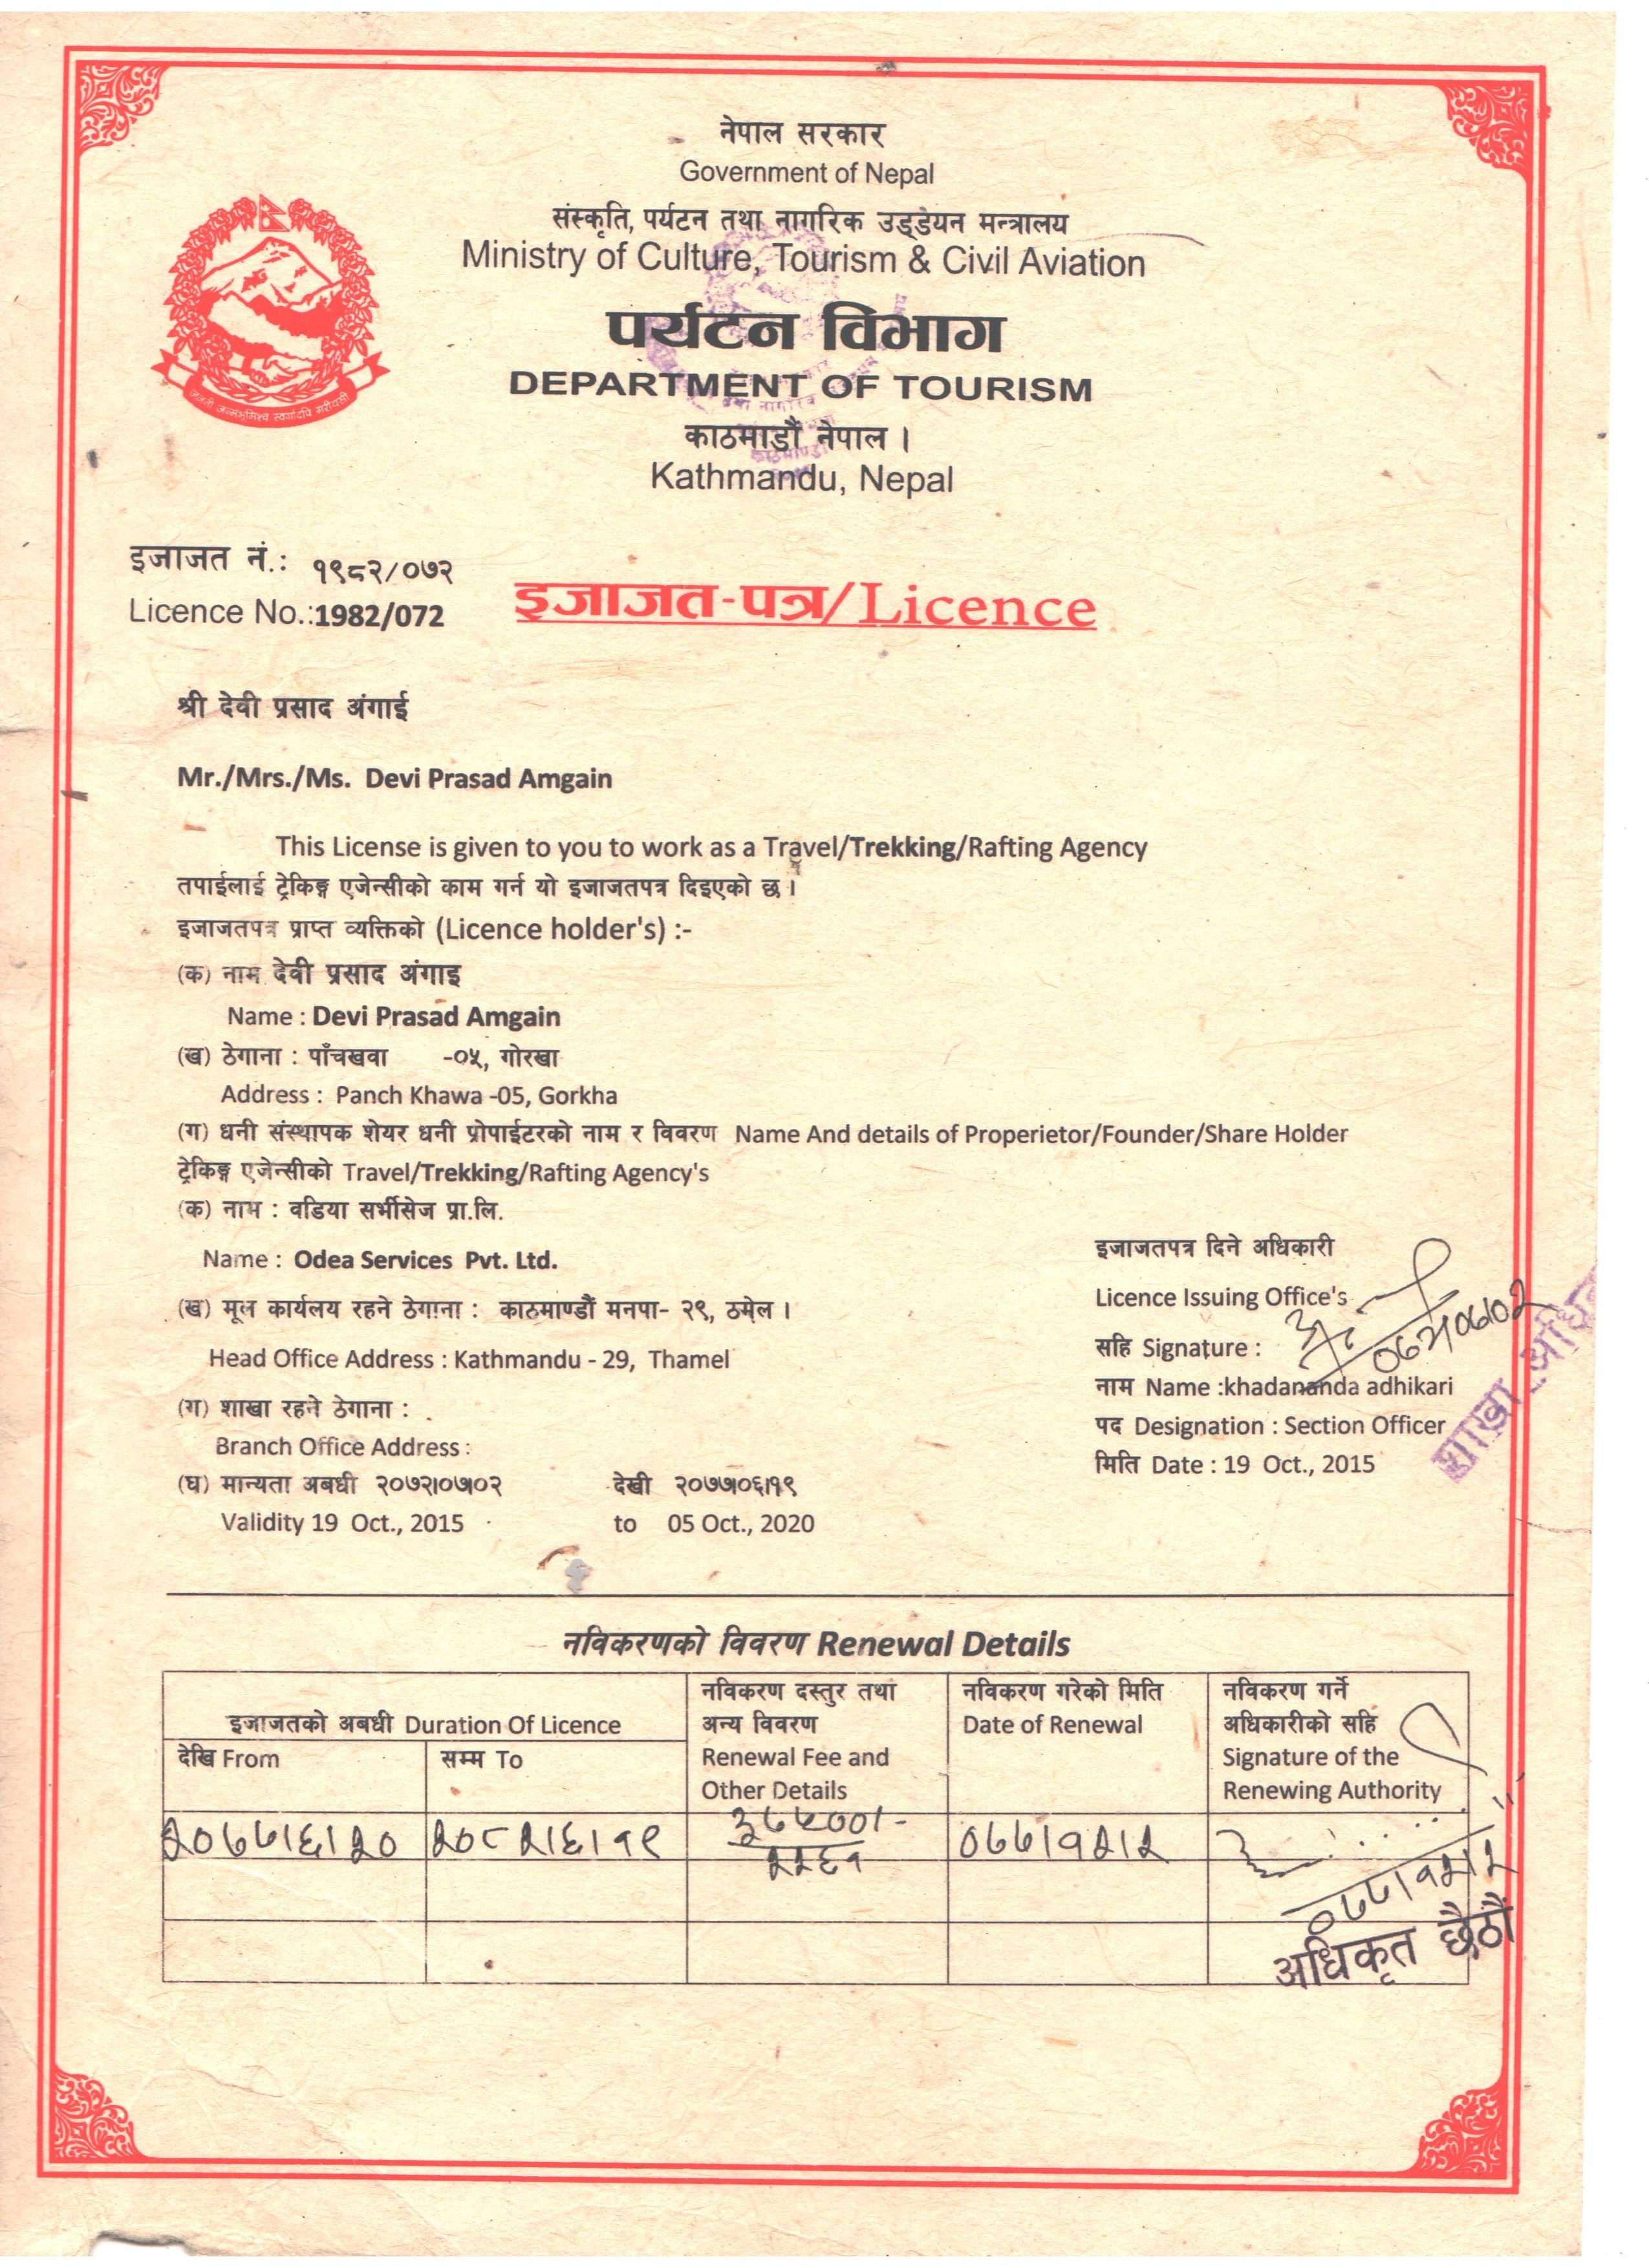 नेपाल सरकार
Government of Nepal
संस्कृति, पर्यटन तथा नागरिक उड्डयन मन्त्रालय
Ministry of Culture, Tourism & Civil Aviation
पर्यटन विभाग
DEPARTMENT OF TOURISM
काठमाडौं नेपाल ।
Kathmandu, Nepal
जननी जन्मभूमिश्च स्वर्गादपि गरीयसी
इजाजत नं.: १९८२/०७२
Licence No.:1982/072
इजाजत-पत्र/Licence
श्री देवी प्रसाद अंगाई
Mr./Mrs./Ms. Devi Prasad Amgain
This License is given to you to work as a Travel/Trekking/Rafting Agency
तपाईलाई ट्रेकिङ्ग एजेन्सीको काम गर्न यो इजाजतपत्र दिइएको छ ।
इजाजतपत्र प्राप्त व्यक्तिको (Licence holder's) :-
(क) नाम देवी प्रसाद अंगाइ
Name : Devi Prasad Amgain
(ख) ठेगाना : पाँचखवा -०५, गोरखा
Address : Panch Khawa -05, Gorkha
(ग) धनी संस्थापक शेयर धनी प्रोपाईटरको नाम र विवरण Name And details of Properietor/Founder/Share Holder
ट्रेकिङ्ग एजेन्सीको Travel/Trekking/Rafting Agency's
(क) नाम : वडिया सर्भीसेज प्रा.लि.
Name : Odea Services Pvt. Ltd.
(ख) मूल कार्यलय रहने ठेगाना : काठमाण्डौं मनपा- २९, ठमेल ।
Head Office Address : Kathmandu - 29, Thamel
(ग) शाखा रहने ठेगाना :
Branch Office Address :
(घ) मान्यता अबधी २०७२।०७।०२ देखी २०७७।०६।१९
Validity 19 Oct., 2015 to 05 Oct., 2020
इजाजतपत्र दिने अधिकारी
Licence Issuing Office's
सहि Signature : ०७२/०७/०२
नाम Name :khadananda adhikari
पद Designation : Section Officer
मिति Date : 19 Oct., 2015
शाखा अधि
नविकरणको विवरण Renewal Details
इजाजतको अबधी Duration Of Licence
देखि From
सम्म To
नविकरण दस्तुर तथा
अन्य विवरण
Renewal Fee and
Other Details
नविकरण गरेको मिति
Date of Renewal
नविकरण गर्ने
अधिकारीको सहि
Signature of the
Renewing Authority
२०७७।६।२० २०८२।६।१९ ३७५००।- ०७७।१२।२
२२६१
०७७।१२।२
अधिकृत छैठौं